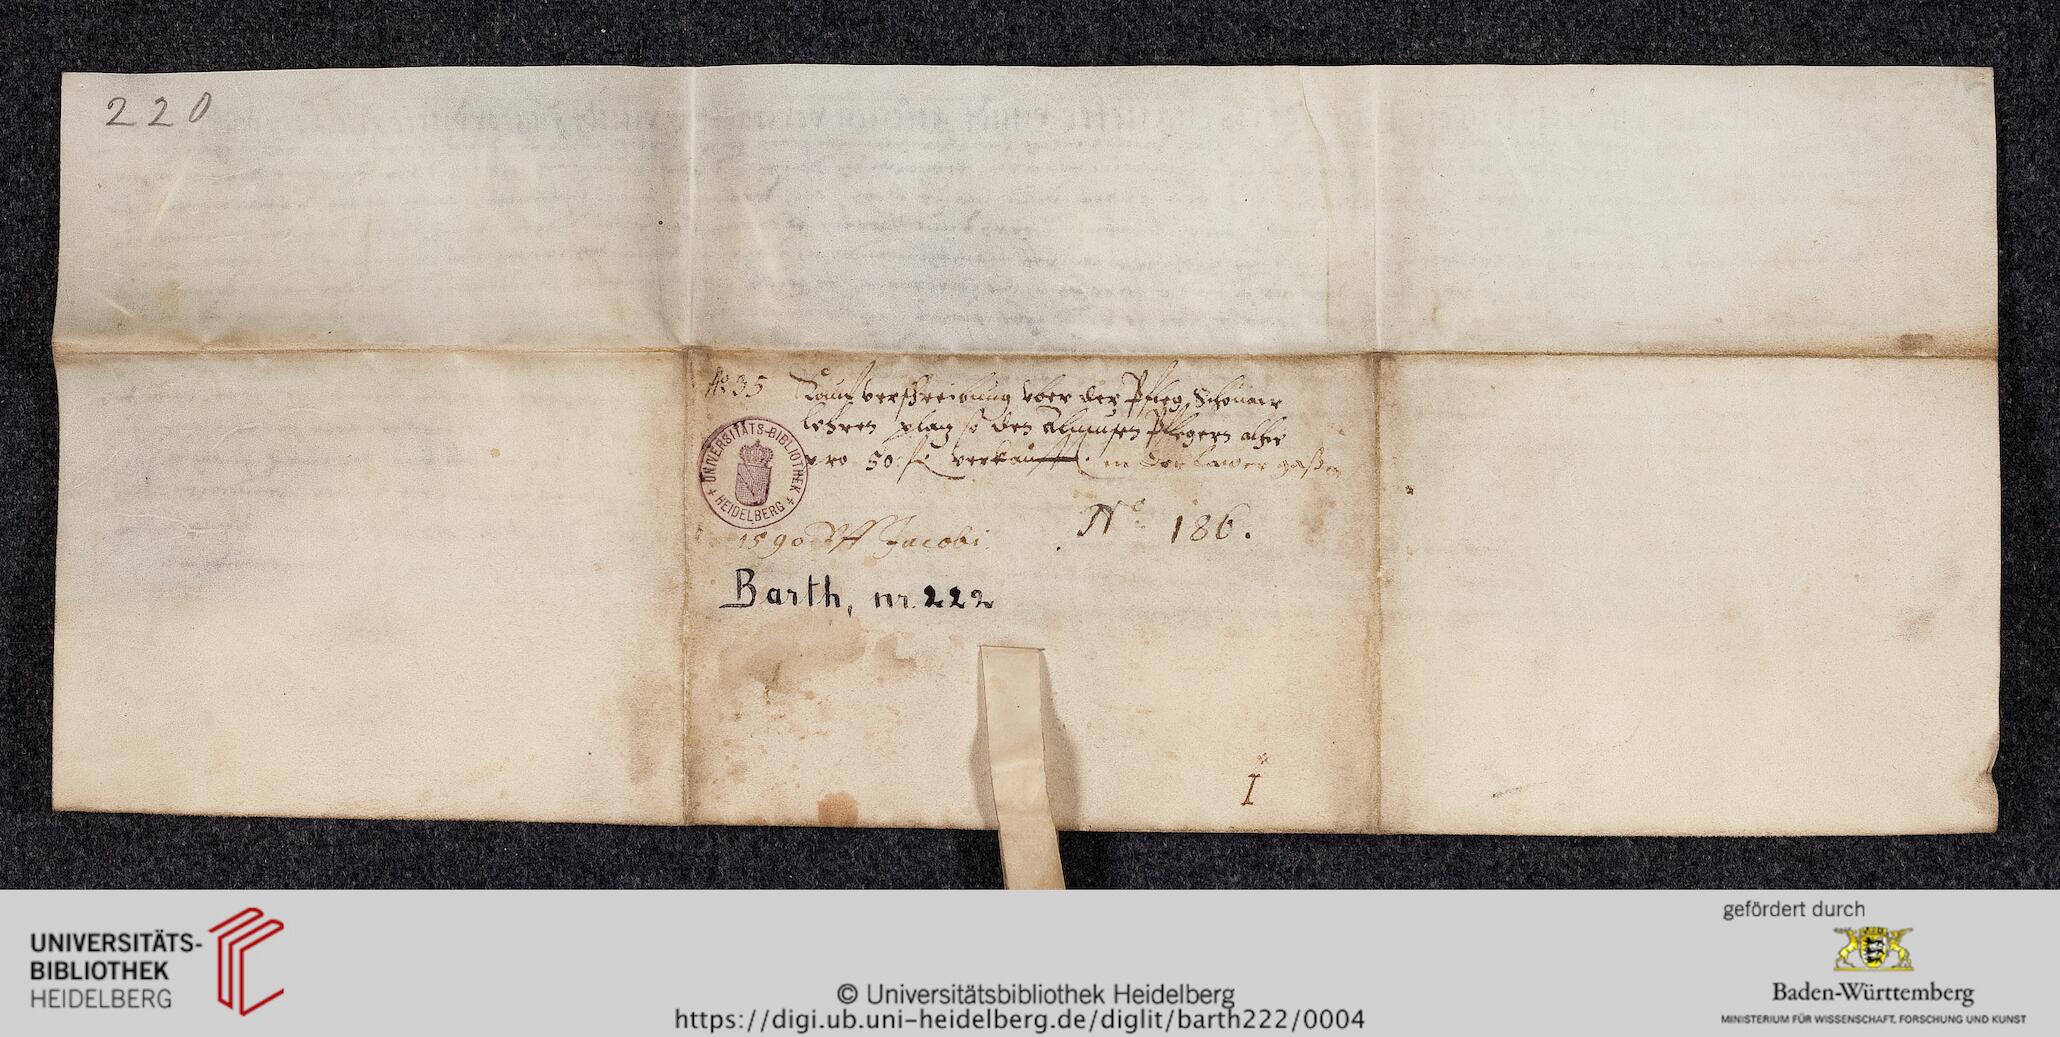 220
No 35 Kauf verschreibung vber der Pfleg Schönaw
lehren platz so den Almusen Pflegern alhie
pro 50 fl verkaufft in der gaßen
UNIVERSITÄTS-BIBLIOTHEK
HEIDELBERG
1590 Vff Jacobi.
No 186.
Barth, nr. 222
I
UNIVERSITÄTS-
BIBLIOTHEK
HEIDELBERG
© Universitätsbibliothek Heidelberg
https://digi.ub.uni-heidelberg.de/diglit/barth222/0004
gefördert durch
Baden-Württemberg
MINISTERIUM FÜR WISSENSCHAFT, FORSCHUNG UND KUNST